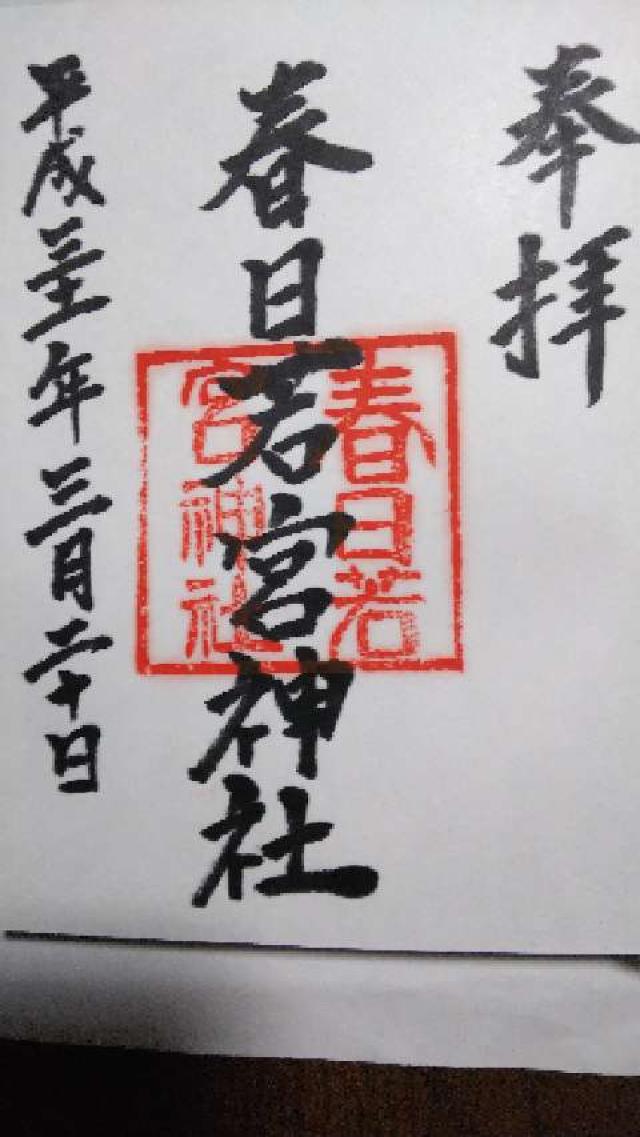 奉拝
春日若宮神社
春日若
宮神社
平成三十一年三月二十日